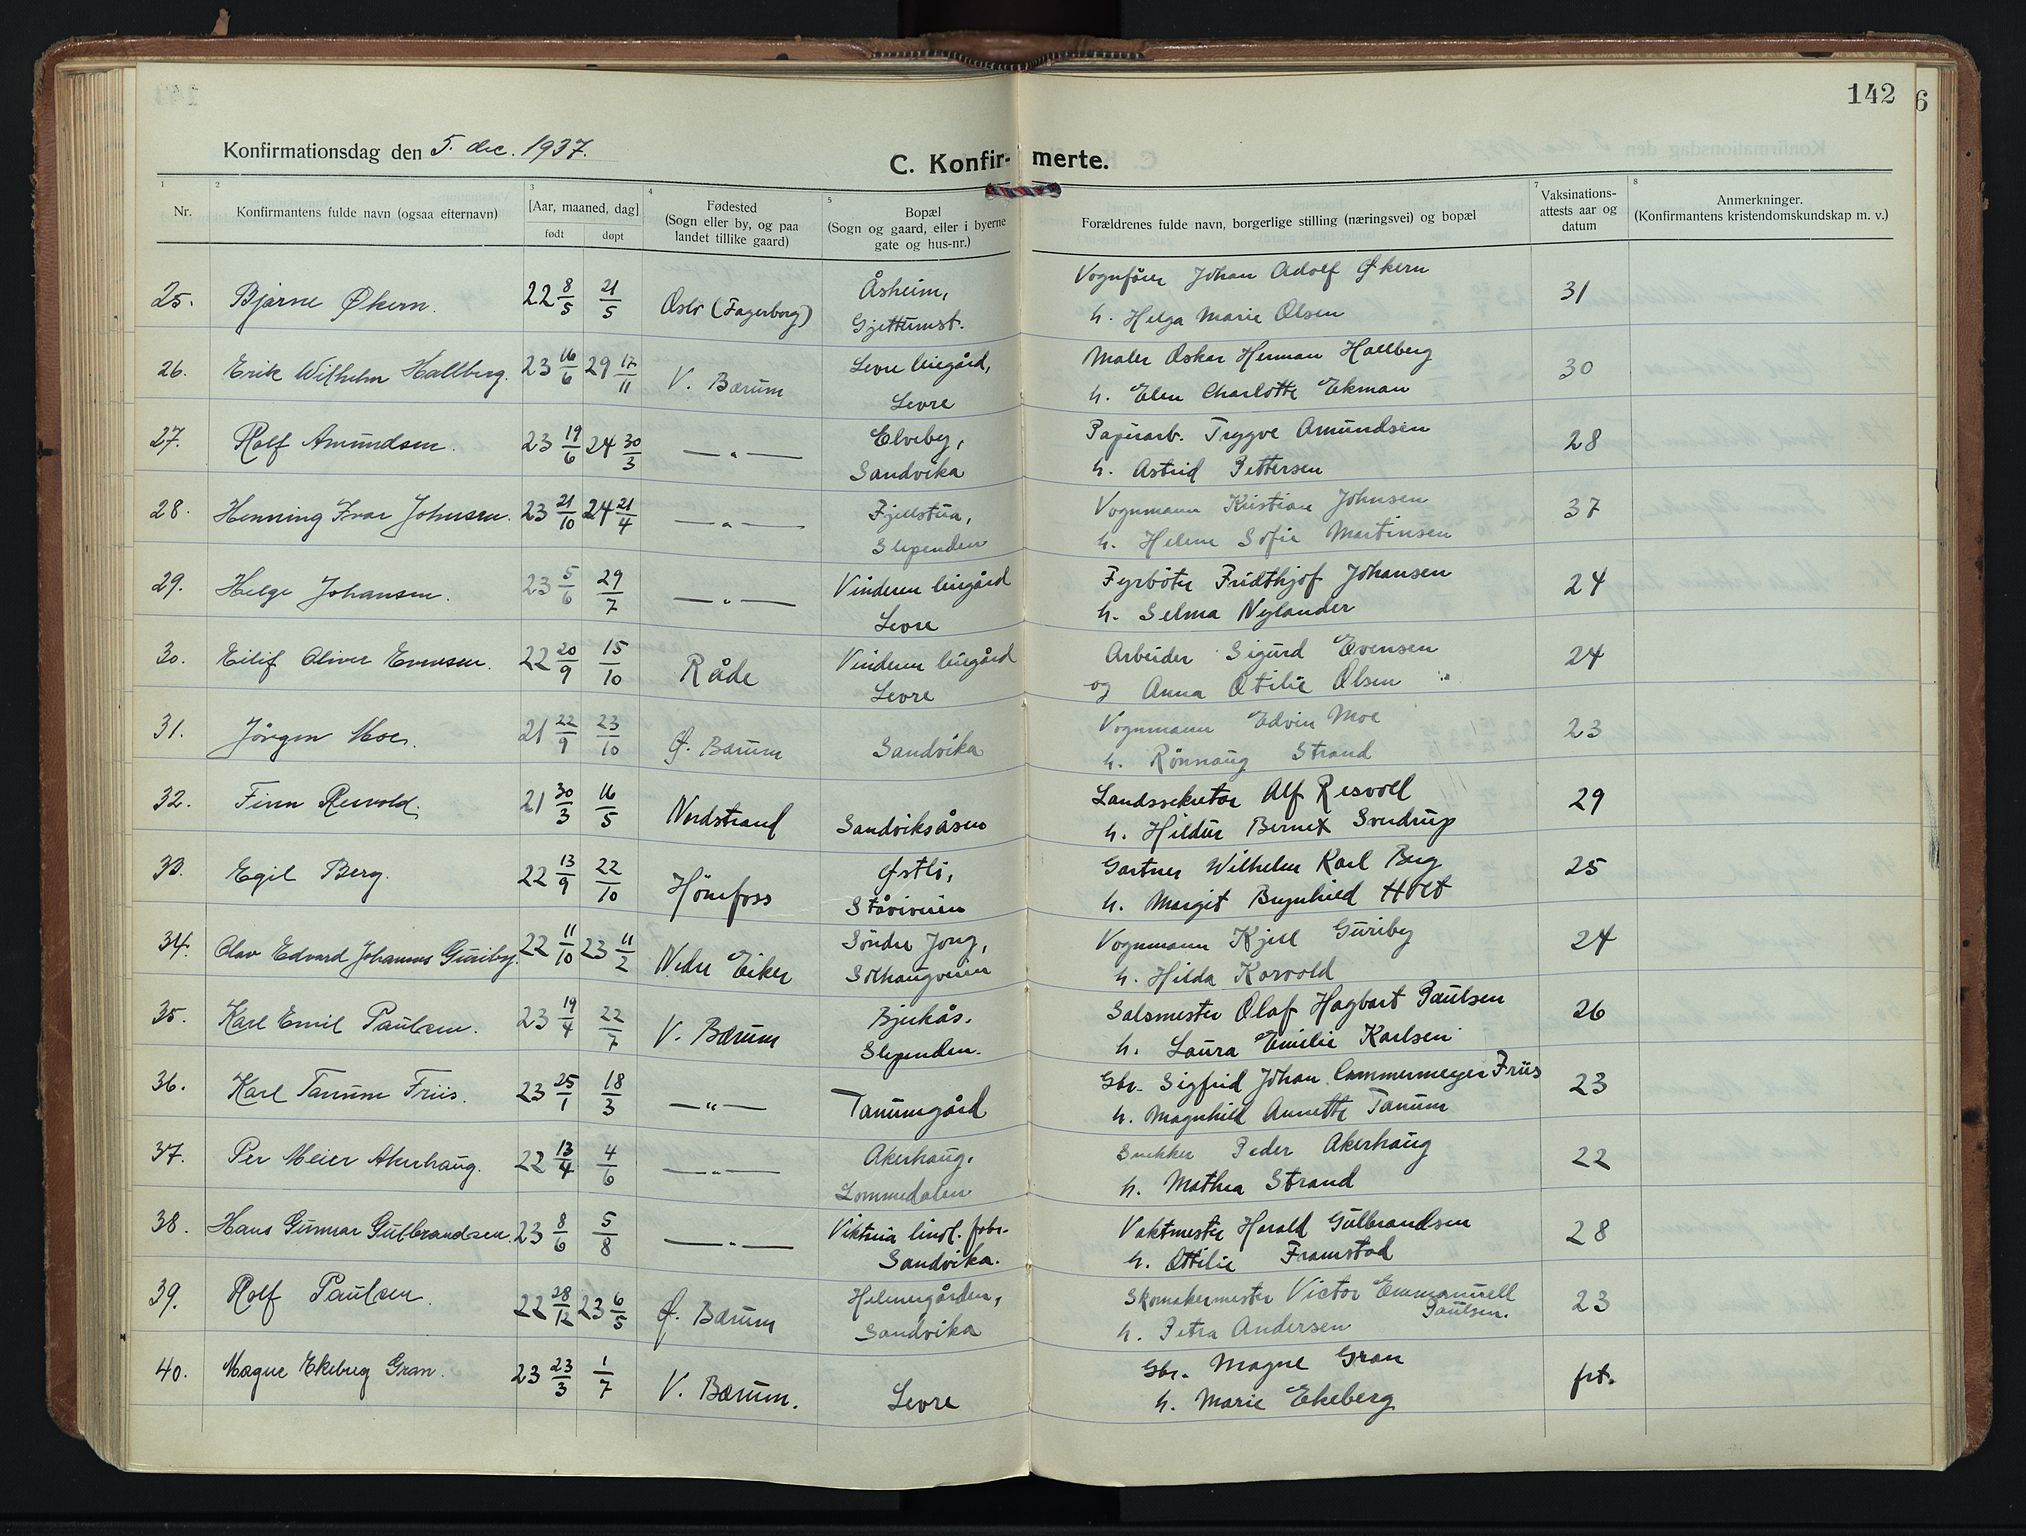 142
6
Konfirmationsdag den 5. dec. 1937.
C. Konfir- merte.
1 2 3 4 5 7 8
Nr.
Konfirmantens fulde navn (ogsaa efternavn)
[Aar, maaned, dag]
født døpt
Fødested
(Sogn eller by, og paa
landet tillike gaard)
Bopæl
(Sogn og gaard, eller i byerne
gate og hus-nr.)
Forældrenes fulde navn, borgerlige stilling (næringsvei) og bopæl
Vaksinations-
attests aar og
datum
Anmerkninger.
(Konfirmantens kristendomskundskap m. v.)
25. Bjarne Økern. 22 8/5 21/5 Oslo (Fagerborg) Åsheim, Vognfører Johan Adolf Økern 31
Gjettumst. h. Helga Marie Olsen
26. Erik Wilhelm Hallberg. 23 16/6 29 17/11 V. Bærum Levre leiegård, Maler Oskar Herman Hallberg 30
Levre h. Elen Charlotte Ekman
27. Rolf Amundsen. 23 19/6 24 30/3 —„— Elveby, Papirarb. Trygve Amundsen 28
Sandvika h. Astrid Pettersen
28. Henning Ivar Johnsen. 23 21/10 24 21/4 —„— Fjellstua, Vognmann Kristian Johnsen 37
Slependen h. Helene Sofie Martinsen
29. Helge Johansen. 23 5/6 29/7 —„— Vinderen leiegård Fyrbøter Fridthjof Johansen 24
Levre h. Selma Nylander
30. Eilif Oliver Evensen. 22 20/9 15/10 Råde Vinderen leiegård Arbeider Sigurd Evensen 24
Levre og Anna Otilie Olsen
31. Jørgen Moe. 21 22/9 23/10 Ø. Bærum Sandvika Vognmann Edvin Moe 23
h. Rønnaug Strand
32. Finn Resvold. 21 30/3 16/5 Nordstrand Sandviksåsen Landssekretær Alf Resvoll 29
h. Hildur Bernet Svendrup
33. Egil Berg. 22 13/9 22/10 Hønefoss Østli, Gartner Wilhelm Karl Berg 25
Ståviveien h. Margit Brynhild Holt
34. Olav Edvard Johannes Guriby. 22 11/10 23 11/2 Nedre Eiker Søndre Jong, Vognmann Kjell Guriby 24
Solhaugveien h. Hilda Korvold
35. Karl Emil Paulsen. 23 19/4 22/7 V. Bærum Bjerkås. Salsmester Olaf Hagbart Paulsen 26
Slependen. h. Laura Emilie Karlsen
36. Karl Tanum Friis. 23 25/1 18/3 —„— Tanumgård Gbr. Sigfrid Johan Cammermeyer Friis 23
h. Magnhild Annette Tanum
37. Per Meier Akerhaug. 22 13/4 4/6 —„— Akerhaug, Snekker Peder Akerhaug 22
Lommedalen h. Mathea Strand
38. Hans Gunnar Gulbrandsen. 23 8/6 5/8 —„— Viktoria linol. fabr. Vaktmester Harald Gulbrandsen 28
Sandvika. h. Ottilie Framstad
39. Rolf Paulsen. 22 28/12 23 6/5 Ø. Bærum Helmergården, Skomakermester Victor Emmanuell Paulsen. 23
Sandvika h. Petra Andersen
40. Magne Ekeberg Gran. 23 23/3 1/7 V. Bærum. Levre Gbr. Magne Gran frt.
h. Marie Ekeberg